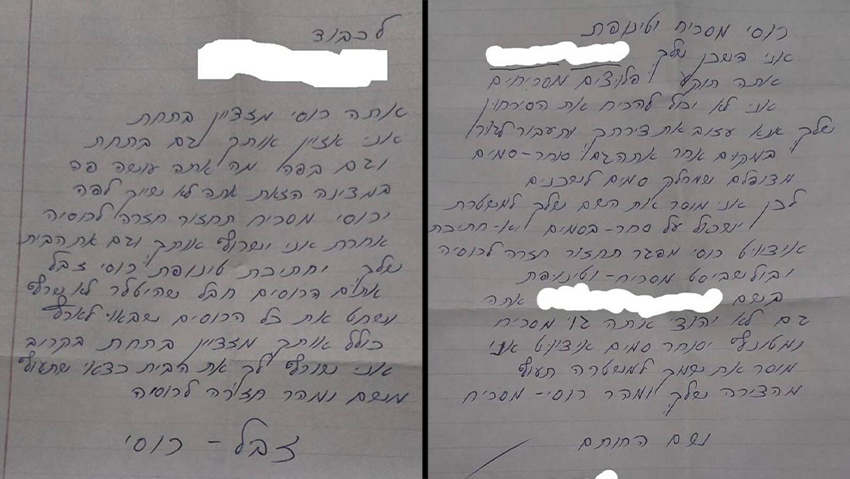 לכבוד
אתה רוסי מזדיין בתחת
אני אזיין אותך גם בתחת
וגם בפה מה אתה עושה פה
במדינה הזאת אתה לא שייך לפה
ירוסי מסריח תחזור חזרה לרוסיה
אחרת אני ישרוף אותך וגם את הבית
שלך יחתיכת טינופת רוסי זבל
אתים הרוסים חבל שהיטלר לא שרף
ושחט את כל הרוסים שבאו לארץ
כולל אותך מזדיין בתחת בקרוב
אני שורף לך את הבית כדאי שתעוף
משם ומהר חזרה לרוסיה
זבל - רוסי
רוסי מסריח וטינופת
אני השכן שלך
אתה תוקע פלוצים מסריחים
אני לא יכול להריח את הסירחון
שלך אנא עזוב את דירתך ותעבור לגור
במקום אחר אתה גם סוחר-סמים
מדופלם שמחלק סמים לשכנים
לכן אני מוסר את השם שלך למשטרת
ישכול על סחר-בסמים יא-חתיכת
אידיוט רוסי מפגר תחזור חזרה לרוסיה
יבולשביסט מסריח-וטינופת
בשם אתה
גם לא יהודי אתה גוי מסריח
ומטונף יסוחר סמים אידיוט אני
מוסר את שמך למשטרה תעוף
מהדירה שלך ומהר רוסי-מסריח
ושם החותם